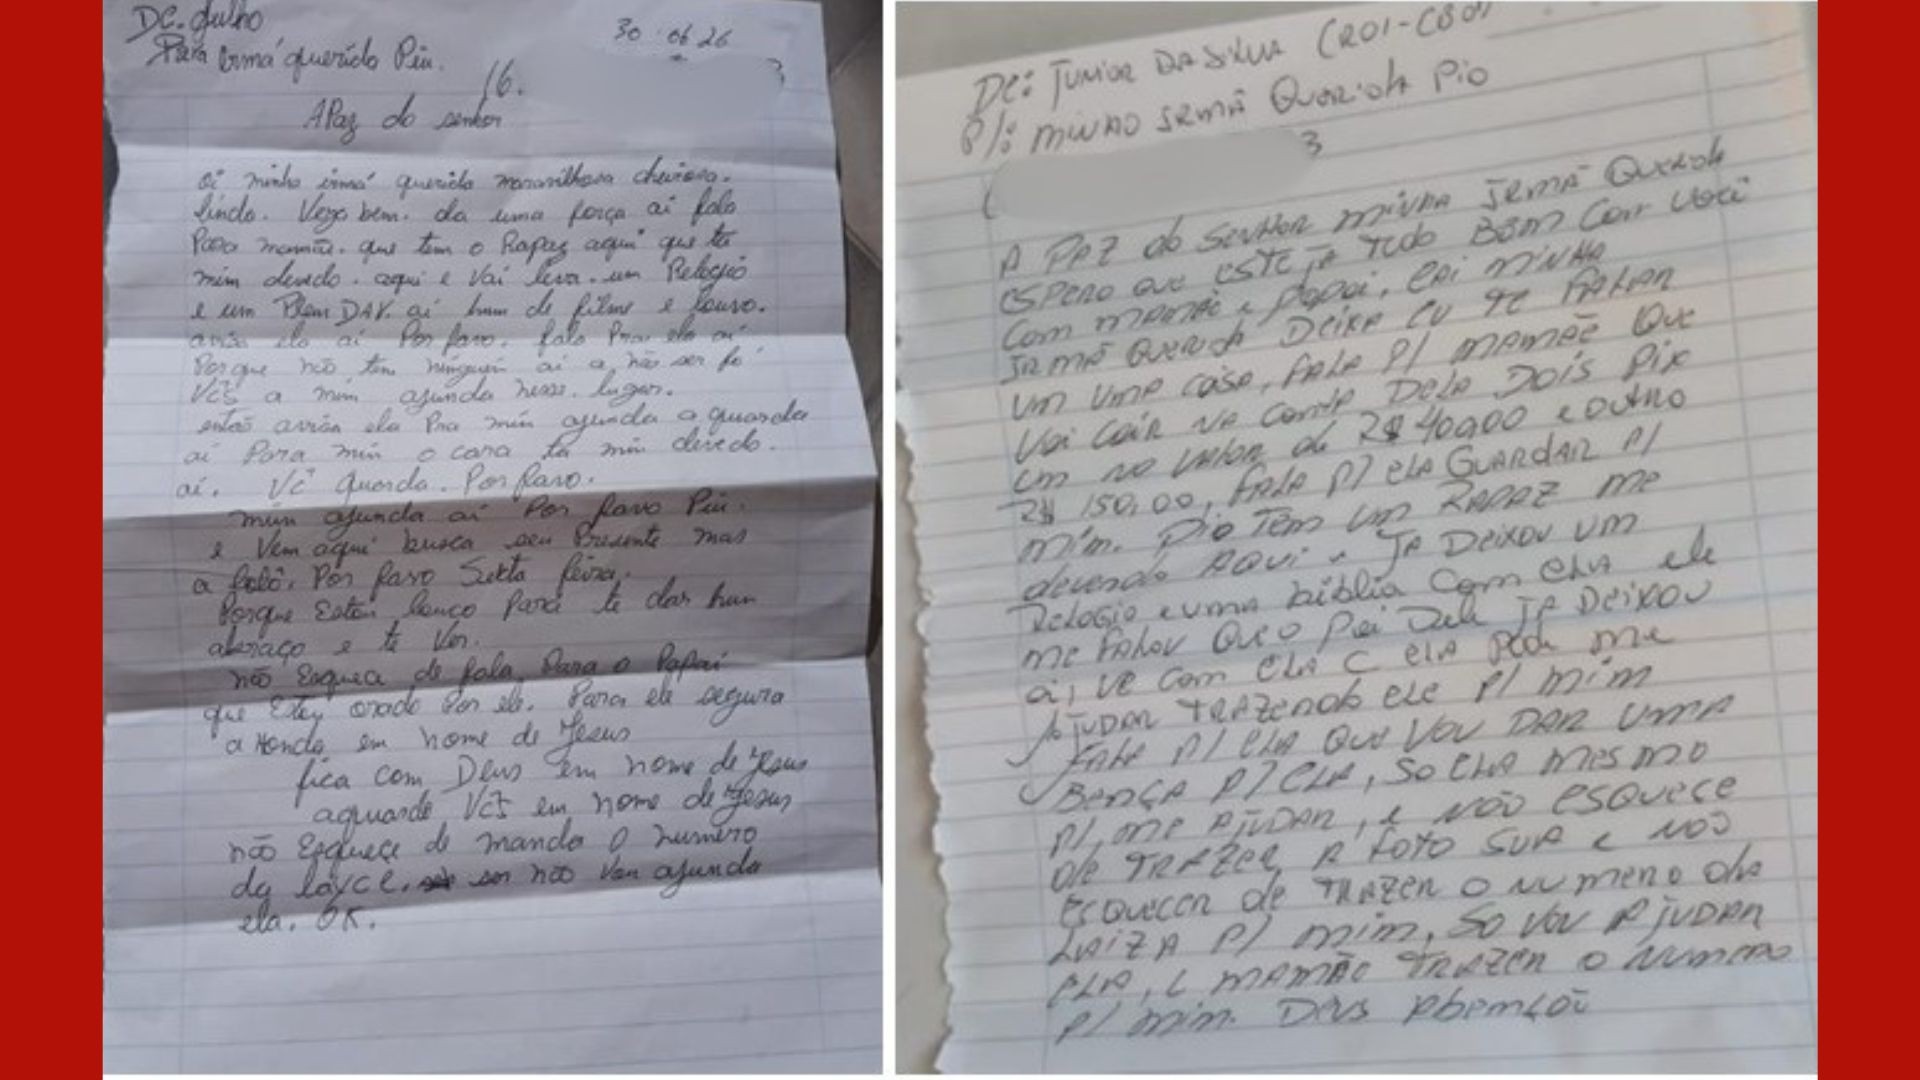 De. Julho
30 06 26
Para Irmá querido Piu.
16.
A Paz do senhor
oi minha irmá querida maravilhosa cheirosa.
linda. Vego bem. da uma força ai fala
Para mamãe. que tem o Rapaz aqui que ta
mim devedo. aqui e vai leva. um Relogio
e um Plem DAV. ai hum de filme e louvo.
avisa ela ai Por favo. fala Pra ela ai
Porque não tem ninguem ai a não ser so
Vcs a mim ajunda nesse. lugar.
entao avisa ela Pra mim ajunda a guarda
ai Para mim o cara ta mim devedo.
ai. Vc Guarda. Por favo.
mim ajunda ai Por favo Piu.
e Vem aqui busca seu Presente mas
a fotô. Por favo Sexta feira.
Porque Estou louco Para te dar hum
abraço e te Ver.
não Esqueca de fala Para o Papai
que Estou orado Por ele. Para ele segura
a Honda em nome de Jesus
fica com Deus em nome de Jesus
aguarde Vcs em nome de Jesus
não Esquece de manda o numero
da não Vou ajunda
ela. OK.
De: Junior DA Silva (R01-C80)
P/: minha irmã Querida Pio
3
A PAZ do Senhor minha irmã Querida
espero que esteja tudo Bom com você
com mamãe e papai, Ei minha
irmã Querida Deixa eu te falar
um uma coisa, fala P/ mamãe que
Vai cair na conta Dela Dois Pix
um no valor de R$ 40,00 e outro
R$ 150,00, fala P/ ela Guardar P/
mim. Pio Tem um Rapaz me
devendo Aqui Ja Deixou um
Relogio e uma biblia com ela ele
me falou Que o Pai Dele Ja Deixou
ai, ve com ela ela Pode me
Ajudar trazendo ele P/ mim
fala P/ ela Que vou DAR uma
Bença P/ ela, so ela mesmo
P/ me ajudar, e não esquece
de trazer a foto sua e não
esquecer de trazer o numero da
Laiza P/ mim, So vou Ajudar
ela, mamãe trazer o numero
P/ mim. Deus Abençoe